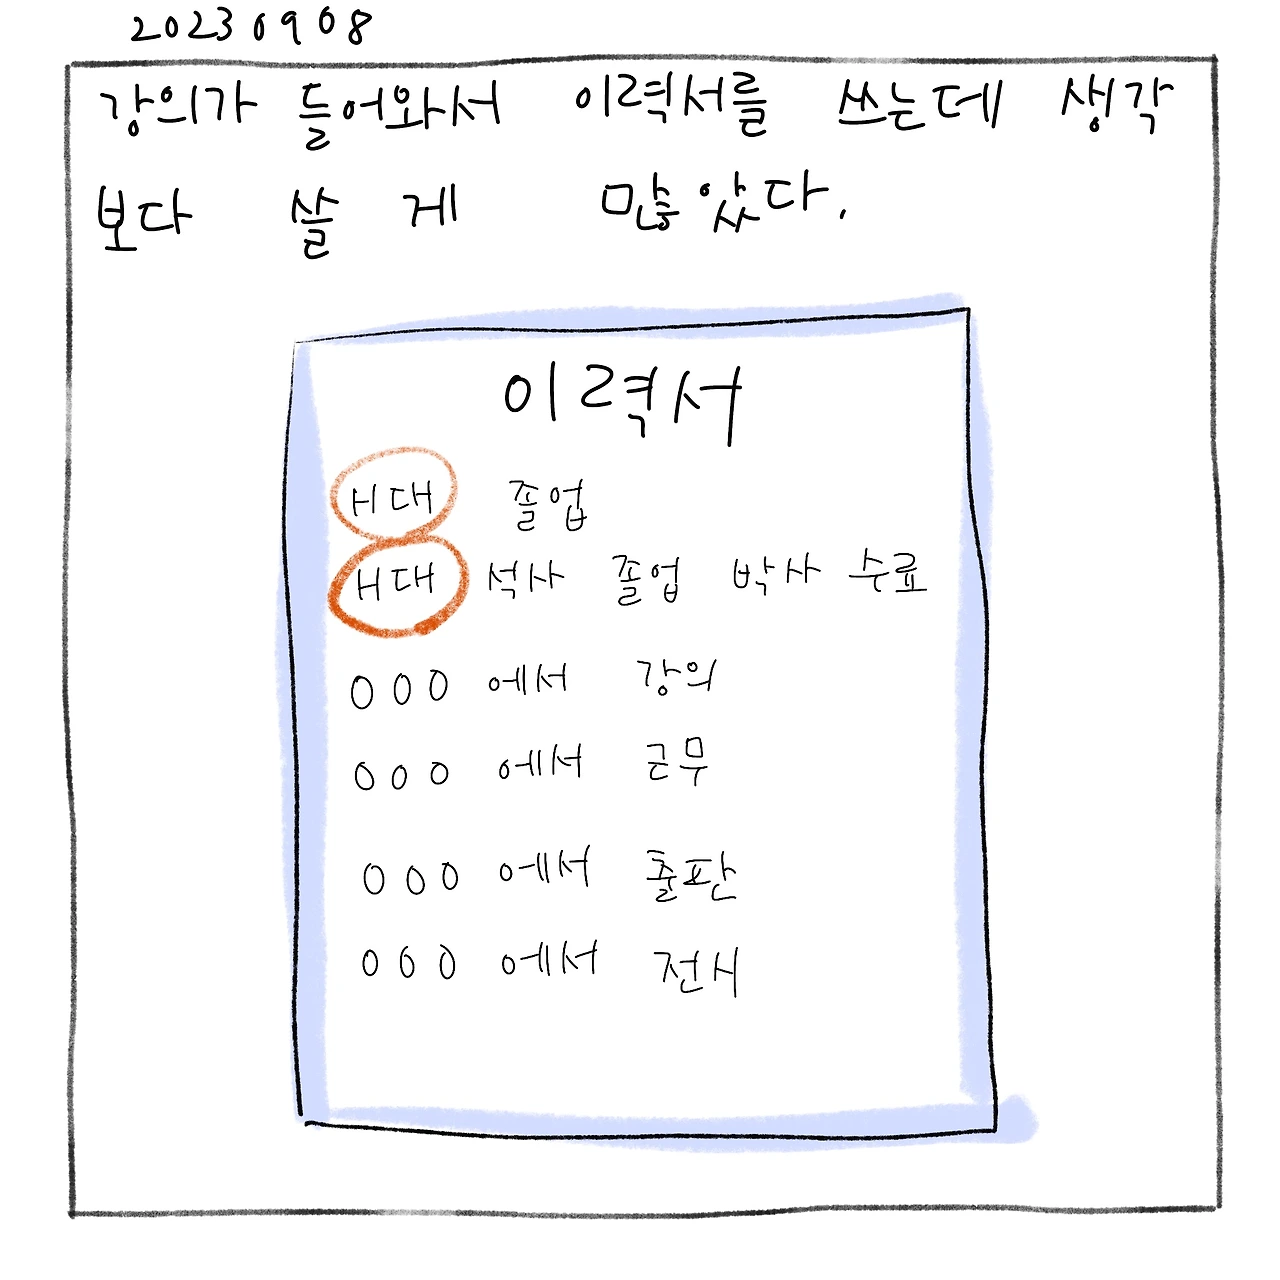 20230908
강의가 들어와서 이력서를 쓰는데 생각
보다 쓸 게 많았다.
이력서
H대 졸업
H대 석사 졸업 박사 수료
000 에서 강의
000 에서 근무
000 에서 출판
000 에서 전시